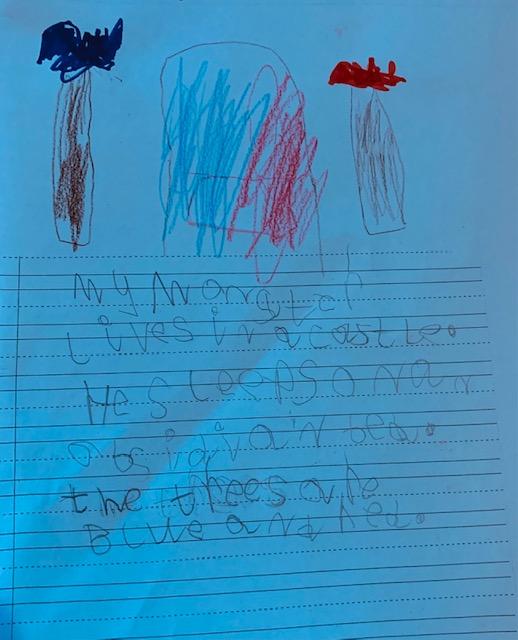 My Mongster
Lives in a castle.
He Sleeps on an
obsidiain bed.
the trees are
Blue and red.